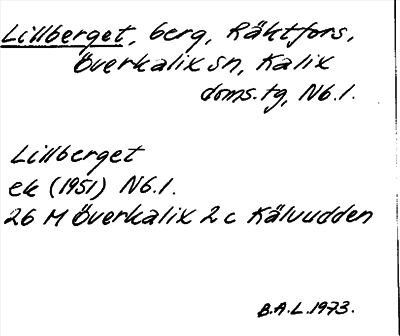 Lillberget, berg, Räktfors,
Överkalix sn, Kalix
doms.tg, Nb.l.
Lillberget
ek (1951) Nb.l.
26 M Överkalix 2 c Kälvudden
B.A.L. 1973.